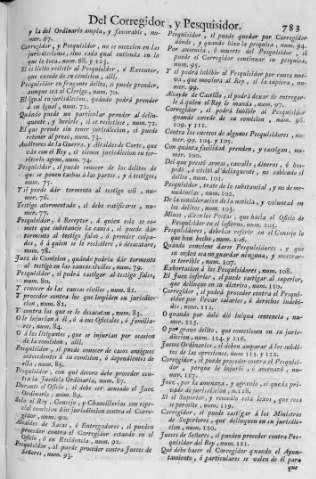 Del Corregidor, y Pesquisidor. 783
y la del Ordinario ampla, y favorable, numer. 67.
Corregidor, y Pesquisidor, no se mezclen en las
jurisdiciones, sino cada qual entienda en lo
que le toca, num. 68. y 123.
Si es licito resistir al Pesquisidor, ò Executor,
que excede de su comision, alli.
Pesquisidor en fragante delito, si puede prender,
aunque sea al Clerigo, num. 70.
El igual en jurisdicion, quàndo podrà prender
à su igual, num. 71.
Quàndo puede un particular prender al delinquente,
y herirle, si se resistiere, num. 72.
El que prende sin tener jurisdicion, si puede
retener al preso, num. 73.
Auditores de la Guerra, y Alcaldes de Corte, que
vàn con el Rey, si tienen jurisdicion en territorio
ageno, num. 74.
Pesquisidor, si puede conocer de los delitos de
que se ponen tachas à las partes, y à testigos,
num. 75.
Y si puede dàr tormento al testigo vil, numer.
76.
Testigo atormentado, si debe ratificarse, numer.
77.
Pesquisidor, ò Receptor, à quien solo se comete
que substancie la causa, si puede dàr
tormento al testigo falso, ò prender culpados,
ò à quien se le resistiere, ò desacatare,
num. 78.
Juez de Comision, quàndo podrìa dàr tormento
al testigo en las causas civiles, num. 79.
Pesquisidor, si podrà castigar al testigo falso,
num. 80.
Y conocer de las causas civiles, num. 81.
Y proceder contra los que impiden su jurisdicion,
num. 82.
Y contra los que se le desacatan, num. 83.
O le injurian à èl, ò à sus Oficiales, ò familiares,
num. 84.
O à los litigantes, que se injurian por ocasion
de la comision, alli.
Pesquisidor, si puede conocer de casos antiguos
antecedentes à su comision, ò dependientes de
ella, num. 85.
Pesquisidor, con què decoro debe proceder contra
la Justicia Ordinaria, num. 87.
Durante el Oficio, si debe ser acusado el Juez
Ordinario, num. 89.
Solo el Rey, Consejo, y Chancillerìas con especial
comision dàn jurisdicion contra el Corregidor,
num. 90.
Alcaldes de Sacas, ò Entregadores, si pueden
proceder contra el Corregidor estando en el
Oficio, ò en Residencia, num. 92.
Pesquisidor, si puede proceder contra Jueces de
Señores, num. 93.
Pesquisidor, si puede quedar por Corregidor
donde, y quando hizo la pesquisa, num. 94.
Por ausencia, ò muerte del Pesquisidor, si
puede el Corregidor continuar su pesquisa,
num. 95.
Y si podrà inhibir al Pesquisidor por causa nueva,
que mueva al Rey, si la supiera, numer.
99.
Alcayde de Castillo, si podrà dexar de entregarle
à quien el Rey le manda, num. 97.
Corregidor, si podrà inhibir al Pesquisidor
quando excede de su comision, num. 98.
109. y 121.
Contra los excesos de algunos Pesquisidores, numer.
99. 104. y 105.
Con quànta facilidad prenden, y castigan, numer.
100.
Del que prestò armas, cavallo, dineros, ò hospedò,
ò visitò al delinquente, no sabiendo el
delito, num. 101.
Pesquisidor, trate de lo substancial, y no de menudencias,
num. 102.
De la consideracion de la malicia, y voluntad en
los delitos, num. 103.
que hacia el Oficio de
Pesquisidor en el Infierno, num. 105.
Pesquisidores, deberian referir en el Consejo lo
que han hecho, num. 106.
Quàndo conviene darse Pesquisidores, y que
su orden era no guardar ninguna, y mostrarse
terrible, num. 107.
Exhortacion à los Pesquisidores, num. 108.
El Juez inferior, si puede castigar al superior,
que delinque en su distrito, num. 110.
Corregidor, si puede proceder contra el Pesquisidor
por llevar salarios, ò derechos indebidos,
num. 112.
O quando por dolo diò iniqua sentencia, numer.
113.
O por grave delito, que cometiesen en su jurisdicion,
num. 114. y 116.
Jueces Ordinarios, si deben amparar à los subditos
de las opresiones, num. 115. y 122.
Corregidor, si puede proceder contra el Pesquisidor,
porque le injuriò, ò amenazò, numer.
117.
Juez, por la amenaza, y agravio, si queda privado
de jurisdicion, n. 118.
Si el Superior, y recusado està lexos, què cosa
se permite, num. 119.
Corregidor, si puede castigar à los Ministros
de Superiores, que delinquen en su jurisdicion,
num. 120.
Jueces de Señores, si pueden proceder contra Pesquisidor
del Rey, num. 121.
Què debe hacer el Corregidor quando el Ayuntamiento,
ò particulares se valen de èl para
que